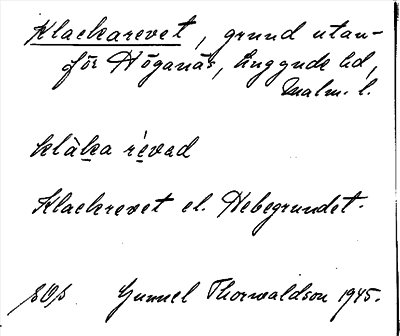 Klackarevet, grund utan-
för Höganäs, Luggude hd,
Malm. l.
klàka révad
Klackrevet el. Hebegrundet.
Gunnel Thorwaldson 1945.